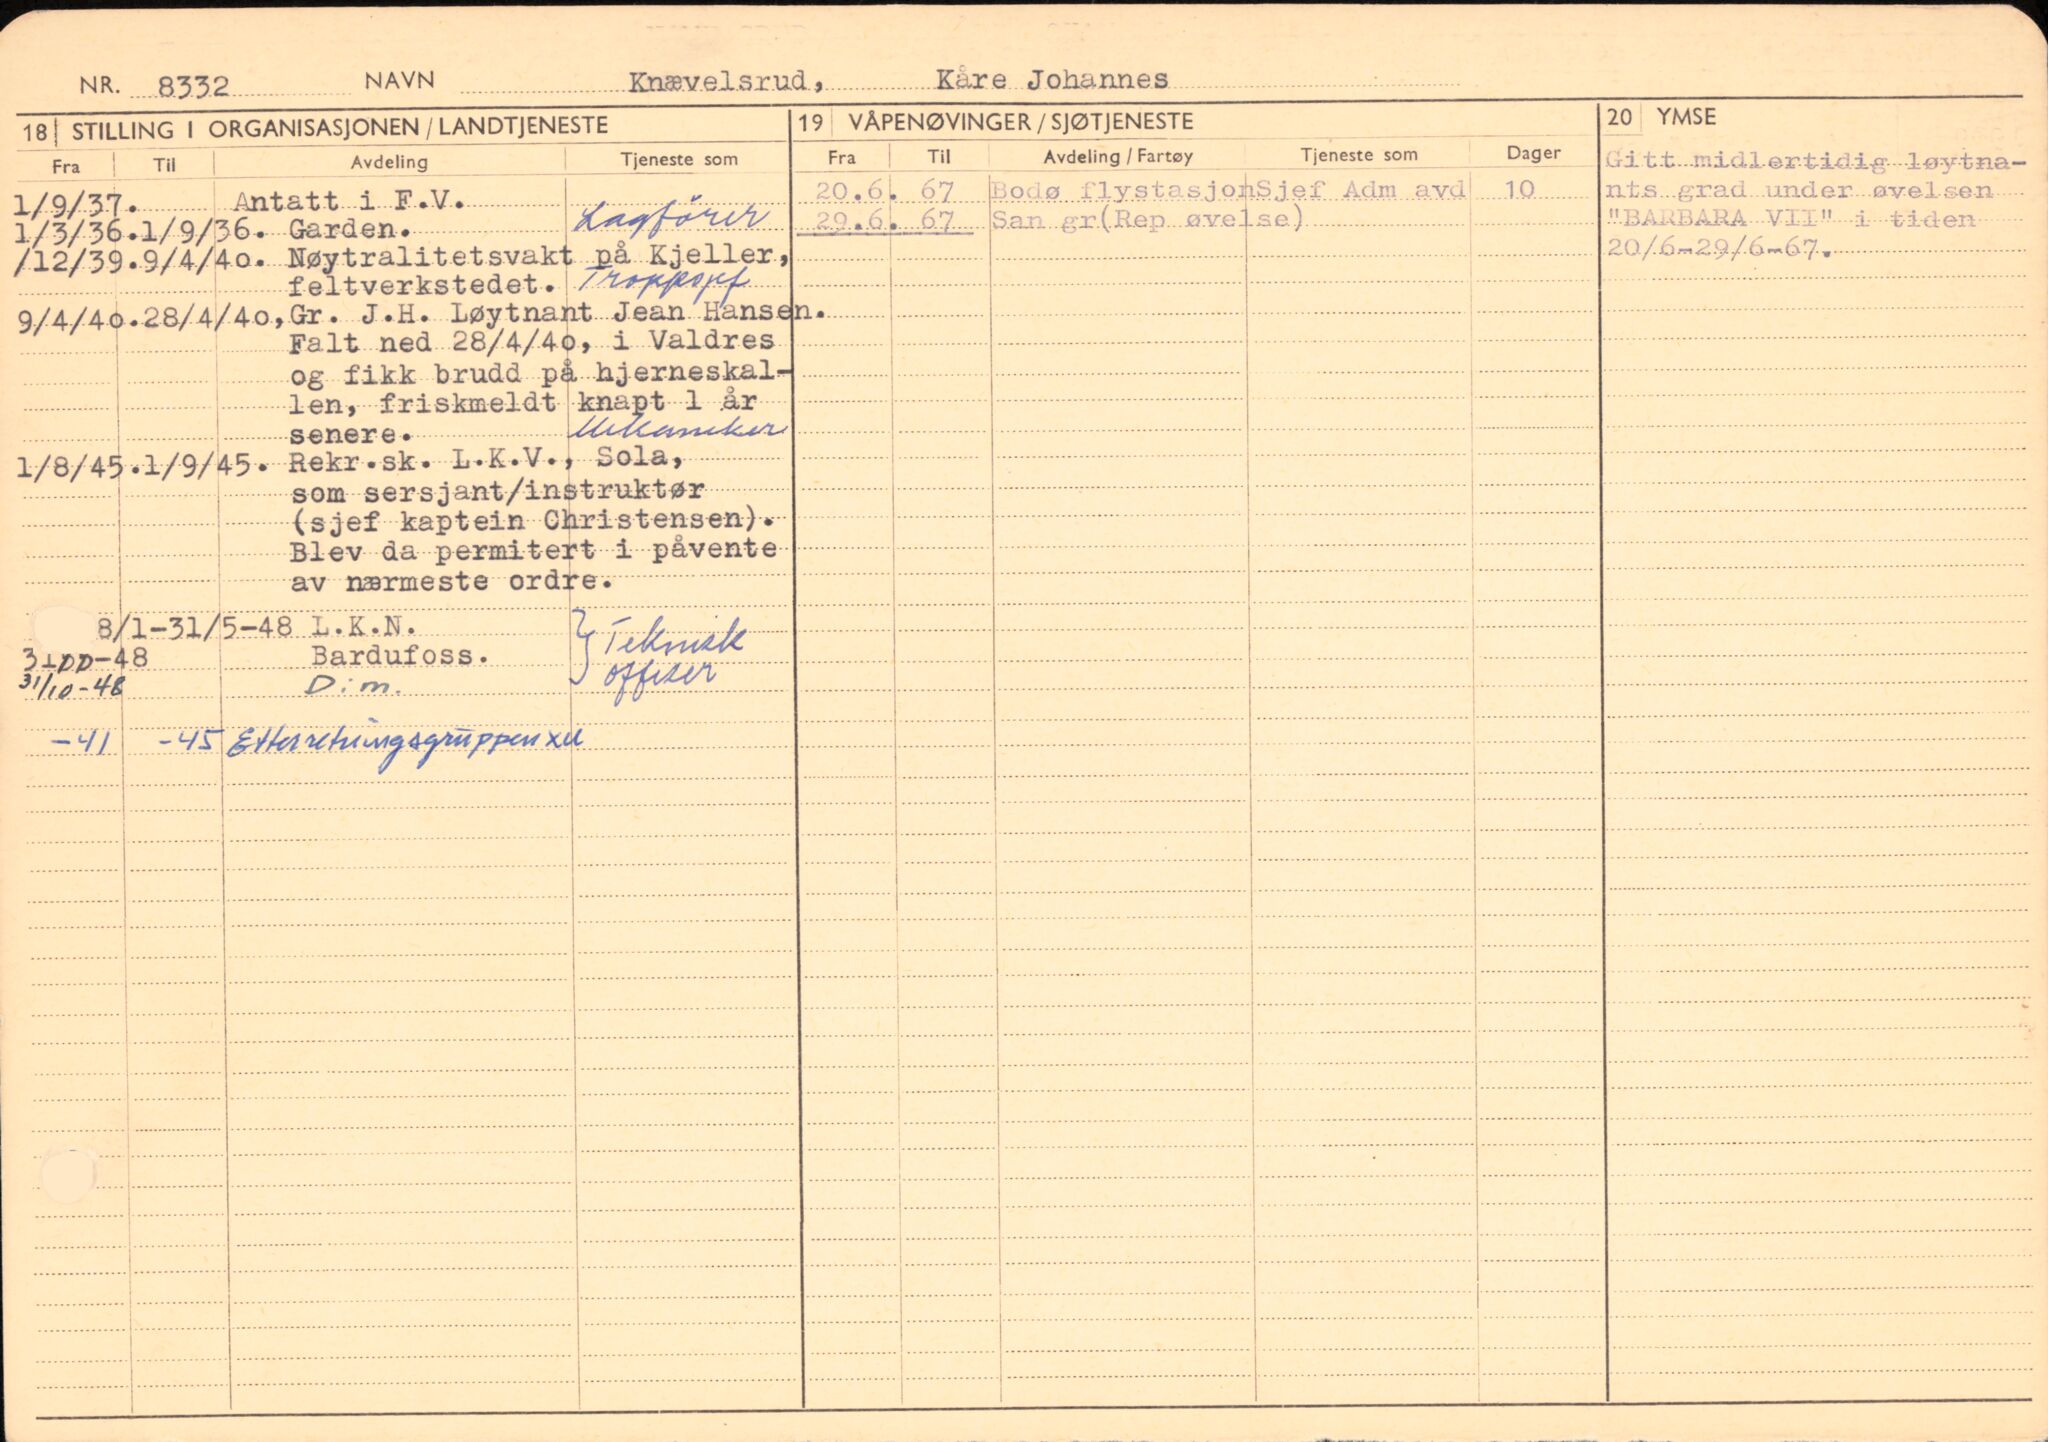 NR. 8332 NAVN Knævelsrud, Kåre Johannes
18 STILLING I ORGANISASJONEN / LANDTJENESTE
Fra Til Avdeling Tjeneste som
1/9/37. Antatt i F.V.
1/3/36. 1/9/36. Garden. Lagförer
/12/39. 9/4/40. Nøytralitetsvakt på Kjeller,
feltverkstedet. Troppssjef
9/4/40. 28/4/40, Gr. J.H. Løytnant Jean Hansen.
Falt ned 28/4/40, i Valdres
og fikk brudd på hjerneskal-
len, friskmeldt knapt 1 år
senere. Mekaniker
1/8/45. 1/9/45. Rekr.sk. L.K.V., Sola,
som sersjant/instruktør
(sjef kaptein Christensen).
Blev da permitert i påvente
av nærmeste ordre.
8/1-31/5-48 L.K.N. Teknisk
-48 Bardufoss. offiser
31/10-48 Dim.
-41 -45 Etterretningsgruppen XU
19 VÅPENØVINGER / SJØTJENESTE
Fra Til Avdeling / Fartøy Tjeneste som Dager
20.6. 67 Bodø flystasjon Sjef Adm avd 10
29.6. 67 San gr (Rep øvelse)
20 YMSE
Gitt midlertidig løytna-
nts grad under øvelsen
"BARBARA VII" i tiden
20/6-29/6-67.